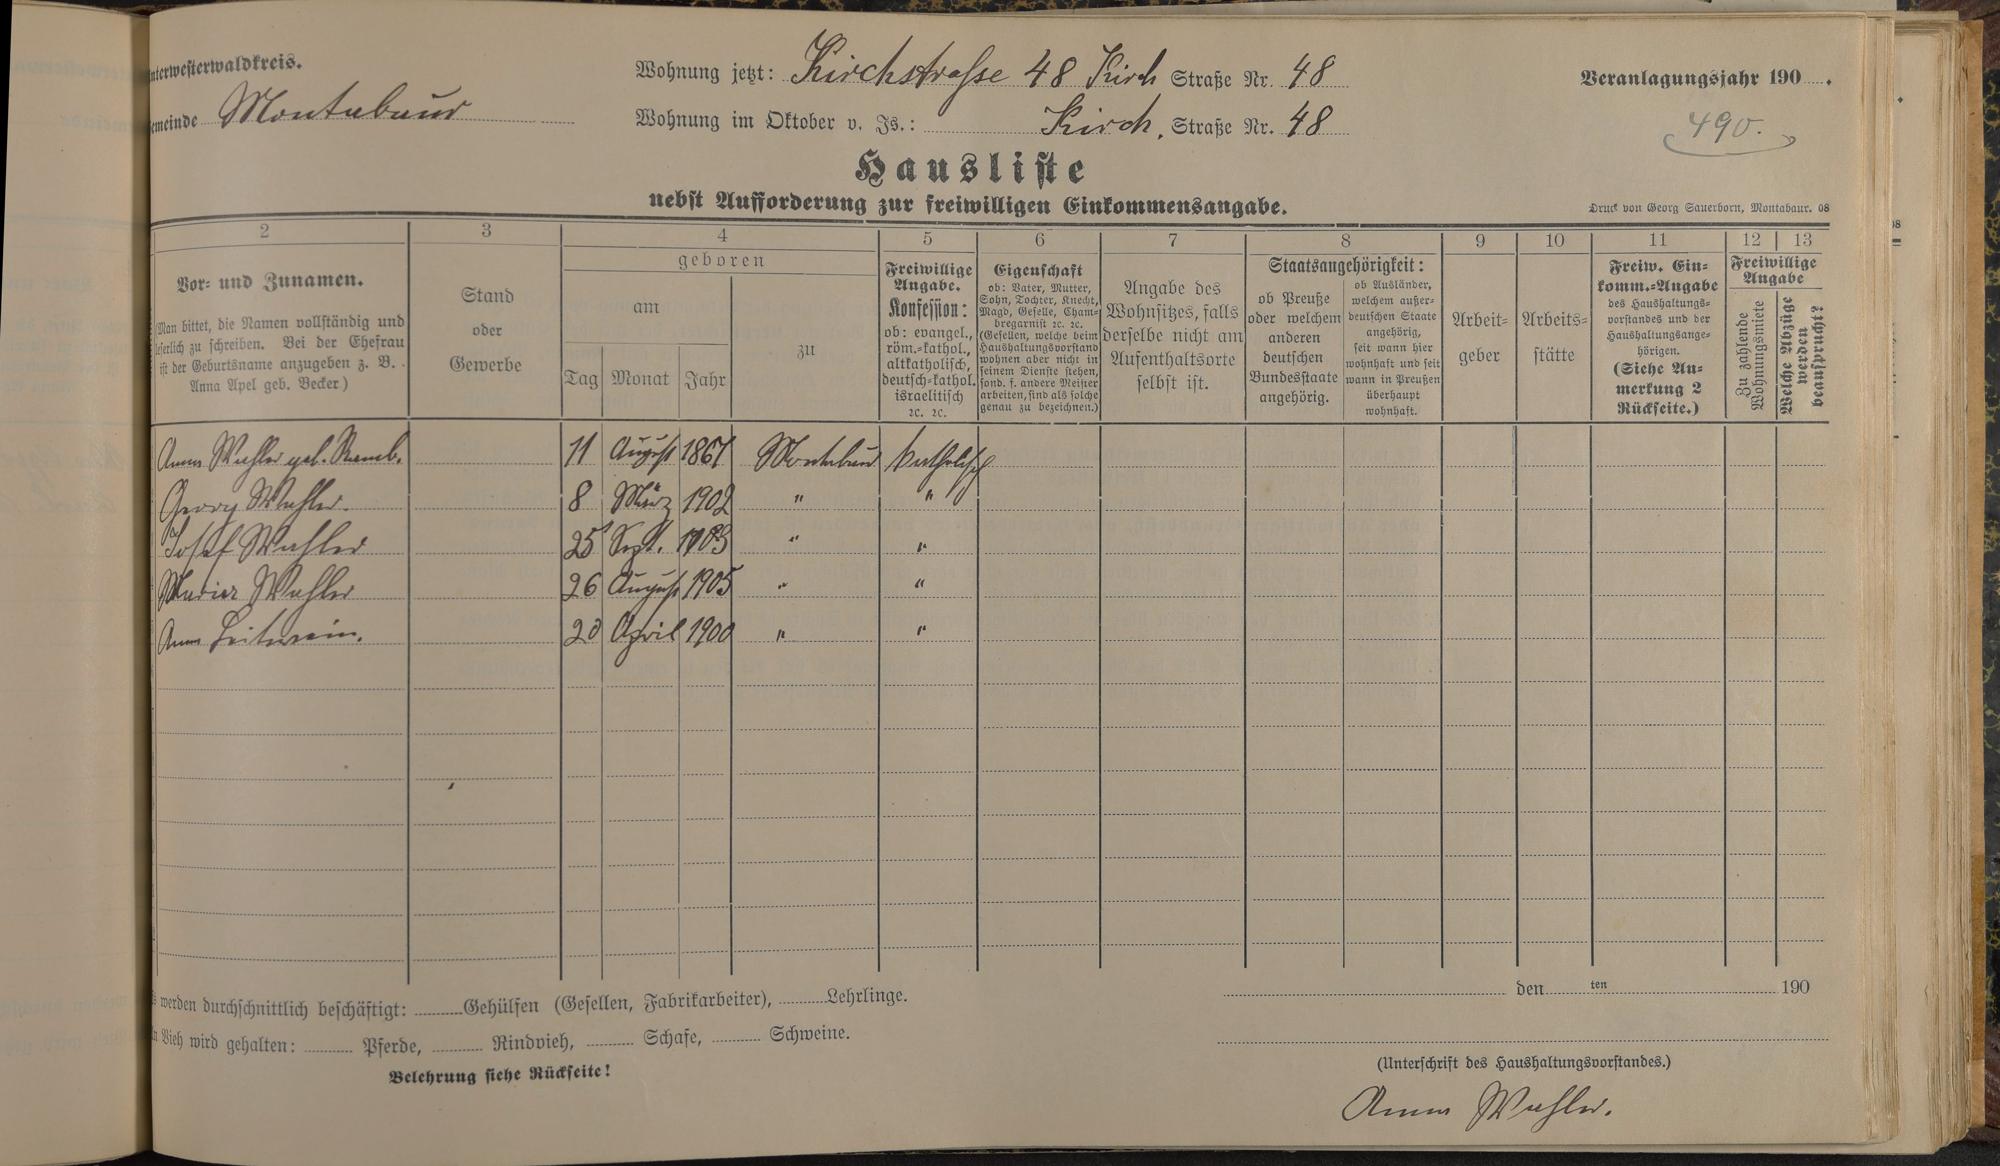 nterwesterwaldkreis.
emeinde Montabaur
Wohnung jetzt: Kirchstrasse 48 Kirch Straße Nr. 48
Wohnung im Oktober v. Js.: Kirch. Straße Nr. 48
Veranlagungsjahr 190 .
490.
Hausliste
nebst Aufforderung zur freiwilligen Einkommensangabe.
Druck von Georg Sauerborn, Montabaur. 08
2 3 4 5 6 7 8 9 10 11 12 13
Vor- und Zunamen.
(Man bittet, die Namen vollständig und
leserlich zu schreiben. Bei der Ehefrau
ist der Geburtsname anzugeben z. B.
Anna Apel geb. Becker.)
Stand
oder
Gewerbe
geboren
am
Tag Monat Jahr
zu
Freiwillige
Angabe.
Konfession:
ob: evangel.,
röm.-kathol.,
altkatholisch,
deutsch-kathol.
israelitisch
ꝛc. ꝛc.
Eigenschaft
ob: Vater, Mutter,
Sohn, Tochter, Knecht,
Magd, Geselle, Cham-
bregarnist ꝛc. ꝛc.
(Gesellen, welche beim
Haushaltungsvorstand
wohnen aber nicht in
seinem Dienste stehen,
sond. f. andere Meister
arbeiten, sind als solche
genau zu bezeichnen.)
Angabe des
Wohnsitzes, falls
derselbe nicht am
Aufenthaltsorte
selbst ist.
Staatsangehörigkeit:
ob Preuße
oder welchem
anderen
deutschen
Bundesstaate
angehörig.
ob Ausländer,
welchem außer-
deutschen Staate
angehörig,
seit wann hier
wohnhaft und seit
wann in Preußen
überhaupt
wohnhaft.
Arbeit-
geber
Arbeits-
stätte
Freiw. Ein-
komm.-Angabe
des Haushaltungs-
vorstandes und der
Haushaltungsange-
hörigen.
(Siehe An-
merkung 2
Rückseite.)
Freiwillige
Angabe
Zu zahlende
Wohnungsmiete
Welche Abzüge
werden
beansprucht?
Anna Wahler geb. 11 August 1867 Montabaur katholisch
Georg Wahler. 8 März 1902 " "
Josef Wahler 25 Sept. 1903 " "
Maria Wahler 26 August 1905 " "
Anna Leitwein. 20 April 1900 " "
werden durchschnittlich beschäftigt: Gehülfen (Gesellen, Fabrikarbeiter), Lehrlinge.
n Vieh wird gehalten: Pferde, Rindvieh, Schafe, Schweine.
Belehrung siehe Rückseite!
den ten 190
(Unterschrift des Haushaltungsvorstandes.)
Anna Wahler.